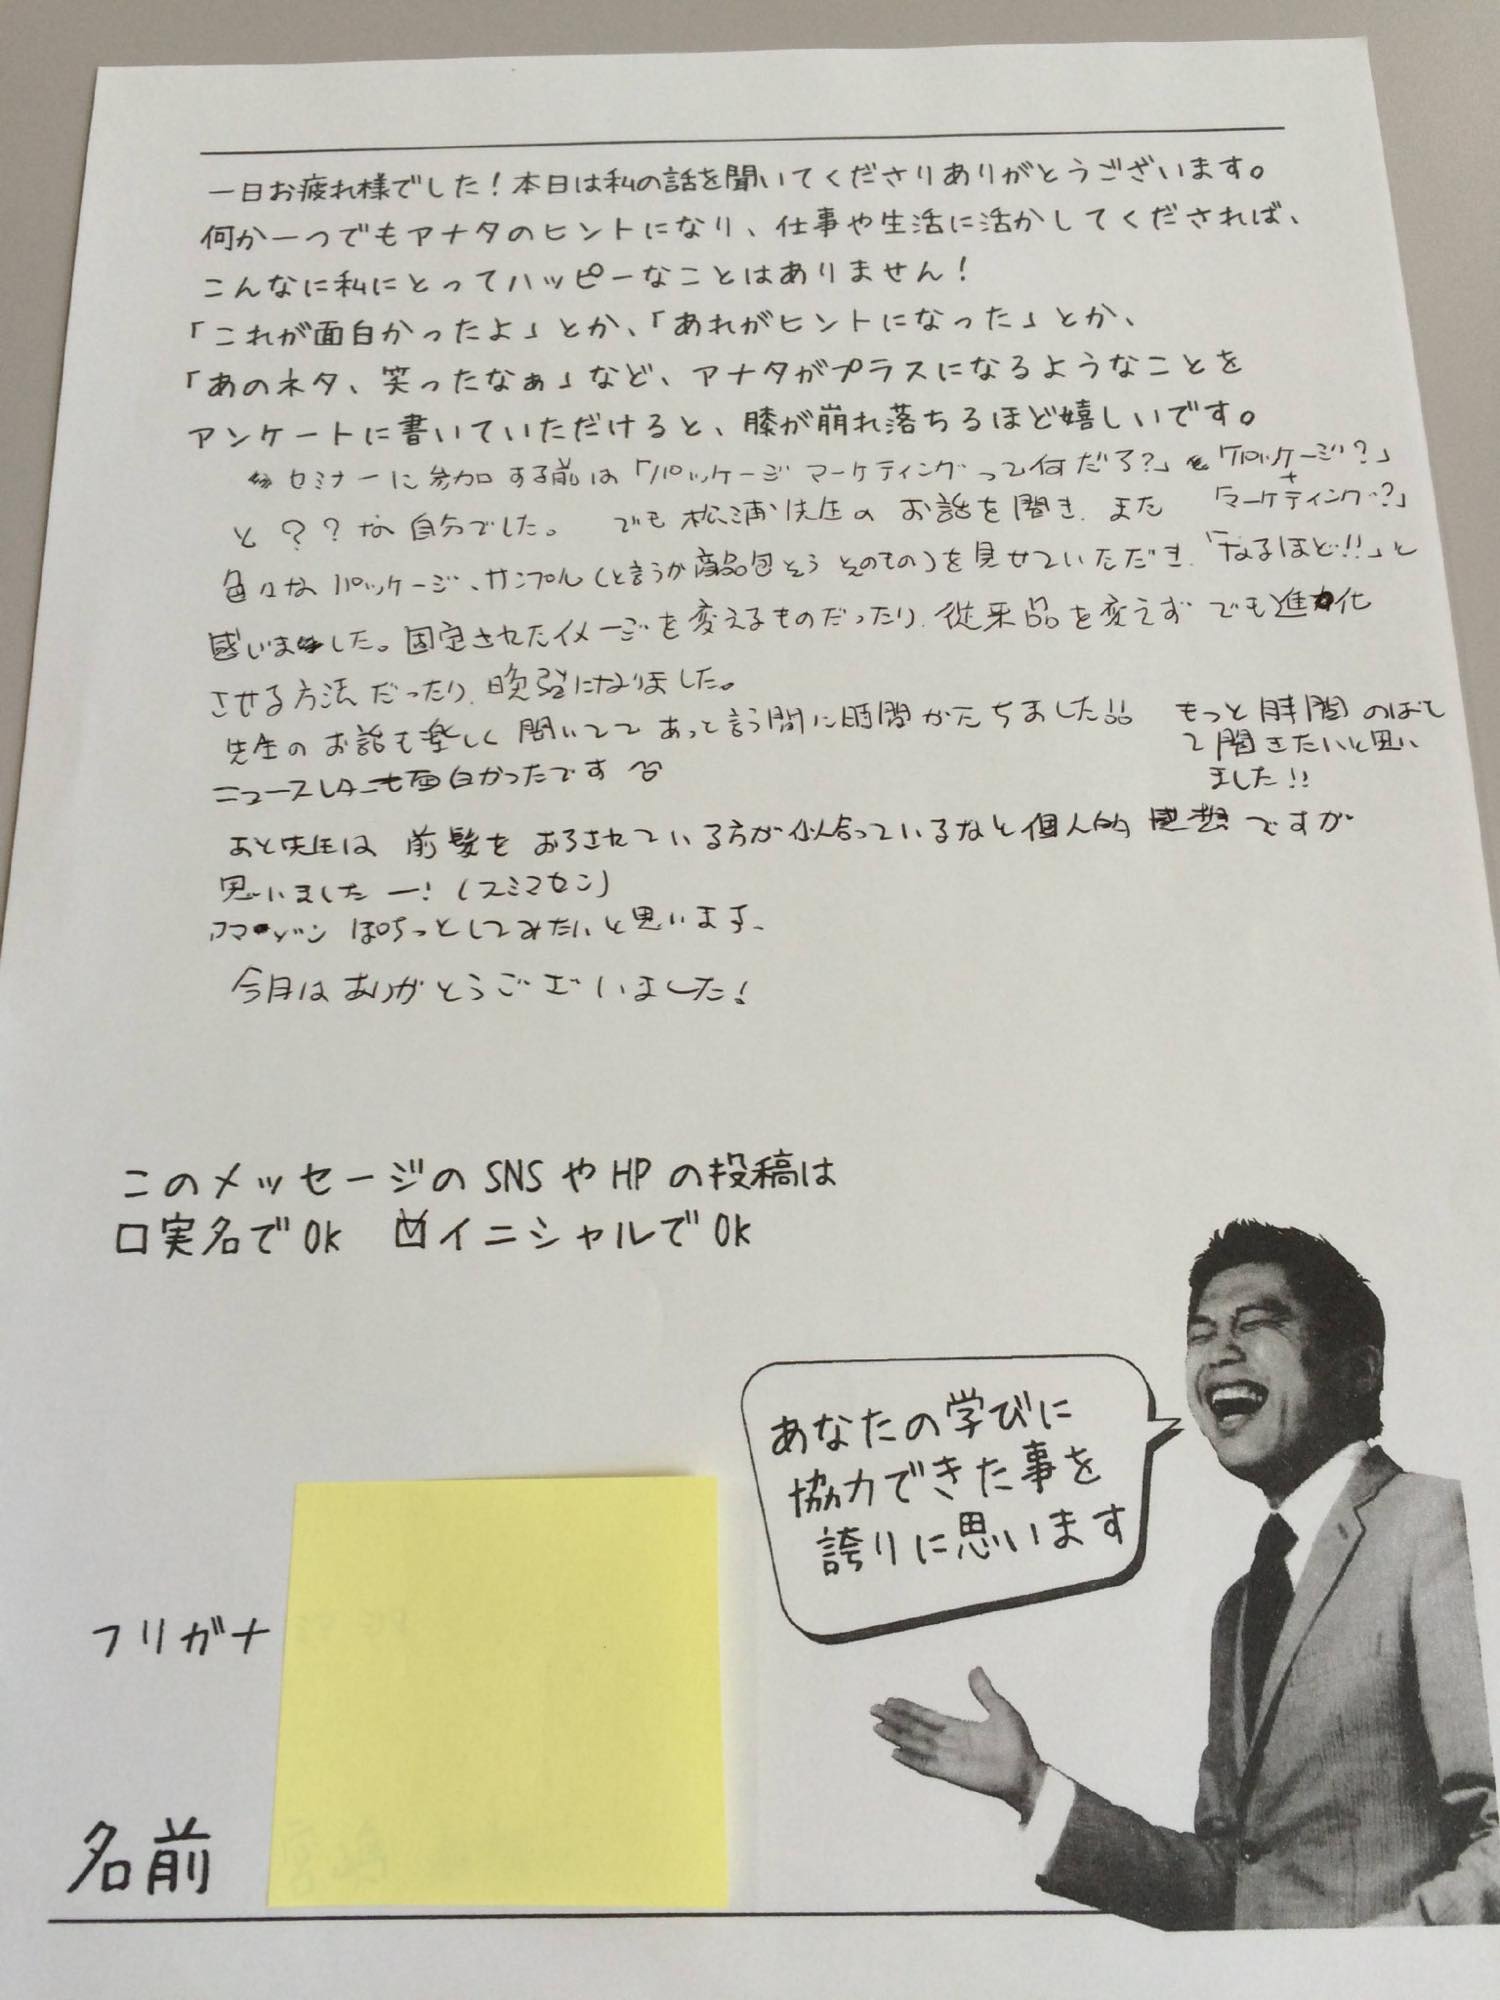 一日お疲れ様でした！本日は私の話を聞いてくださりありがとうございます。
何か一つでもアナタのヒントになり、仕事や生活に活かしてくだされば、
こんなに私にとってハッピーなことはありません！
「これが面白かったよ」とか、「あれがヒントになった」とか、
「あのネタ、笑ったなぁ」など、アナタがプラスになるようなことを
アンケートに書いていただけると、膝が崩れ落ちるほど嬉しいです。
セミナーに参加する前は「パッケージマーケティングって何だろ？」「パッケージ？」
+
「マーケティング？」
と？？な自分でした。 でも松浦先生のお話を聞き、また
色々なパッケージ、サンプル（と言うか商品包そうそのもの）を見せていただき、「なるほど!!」と
感いました。固定されたイメージを変えるものだったり、従来品を変えずでも進化
させる方法だったり、勉強になりました。
先生のお話も楽しく聞いててあっと言う間に時間がたちました!! もっと時間のばし
て聞きたいと思い
ました!!
ニュースレターも面白かったです
あと先生は前髪をおろされている方が似合っているなと個人的感想ですが
思いましたー！（スミマセン）
アマゾンぽちっとしてみたいと思います。
今日はありがとうございました！
このメッセージのSNSやHPの投稿は
□実名でOK ☑イニシャルでOK
あなたの学びに
協力できた事を
誇りに思います
フリガナ
名前